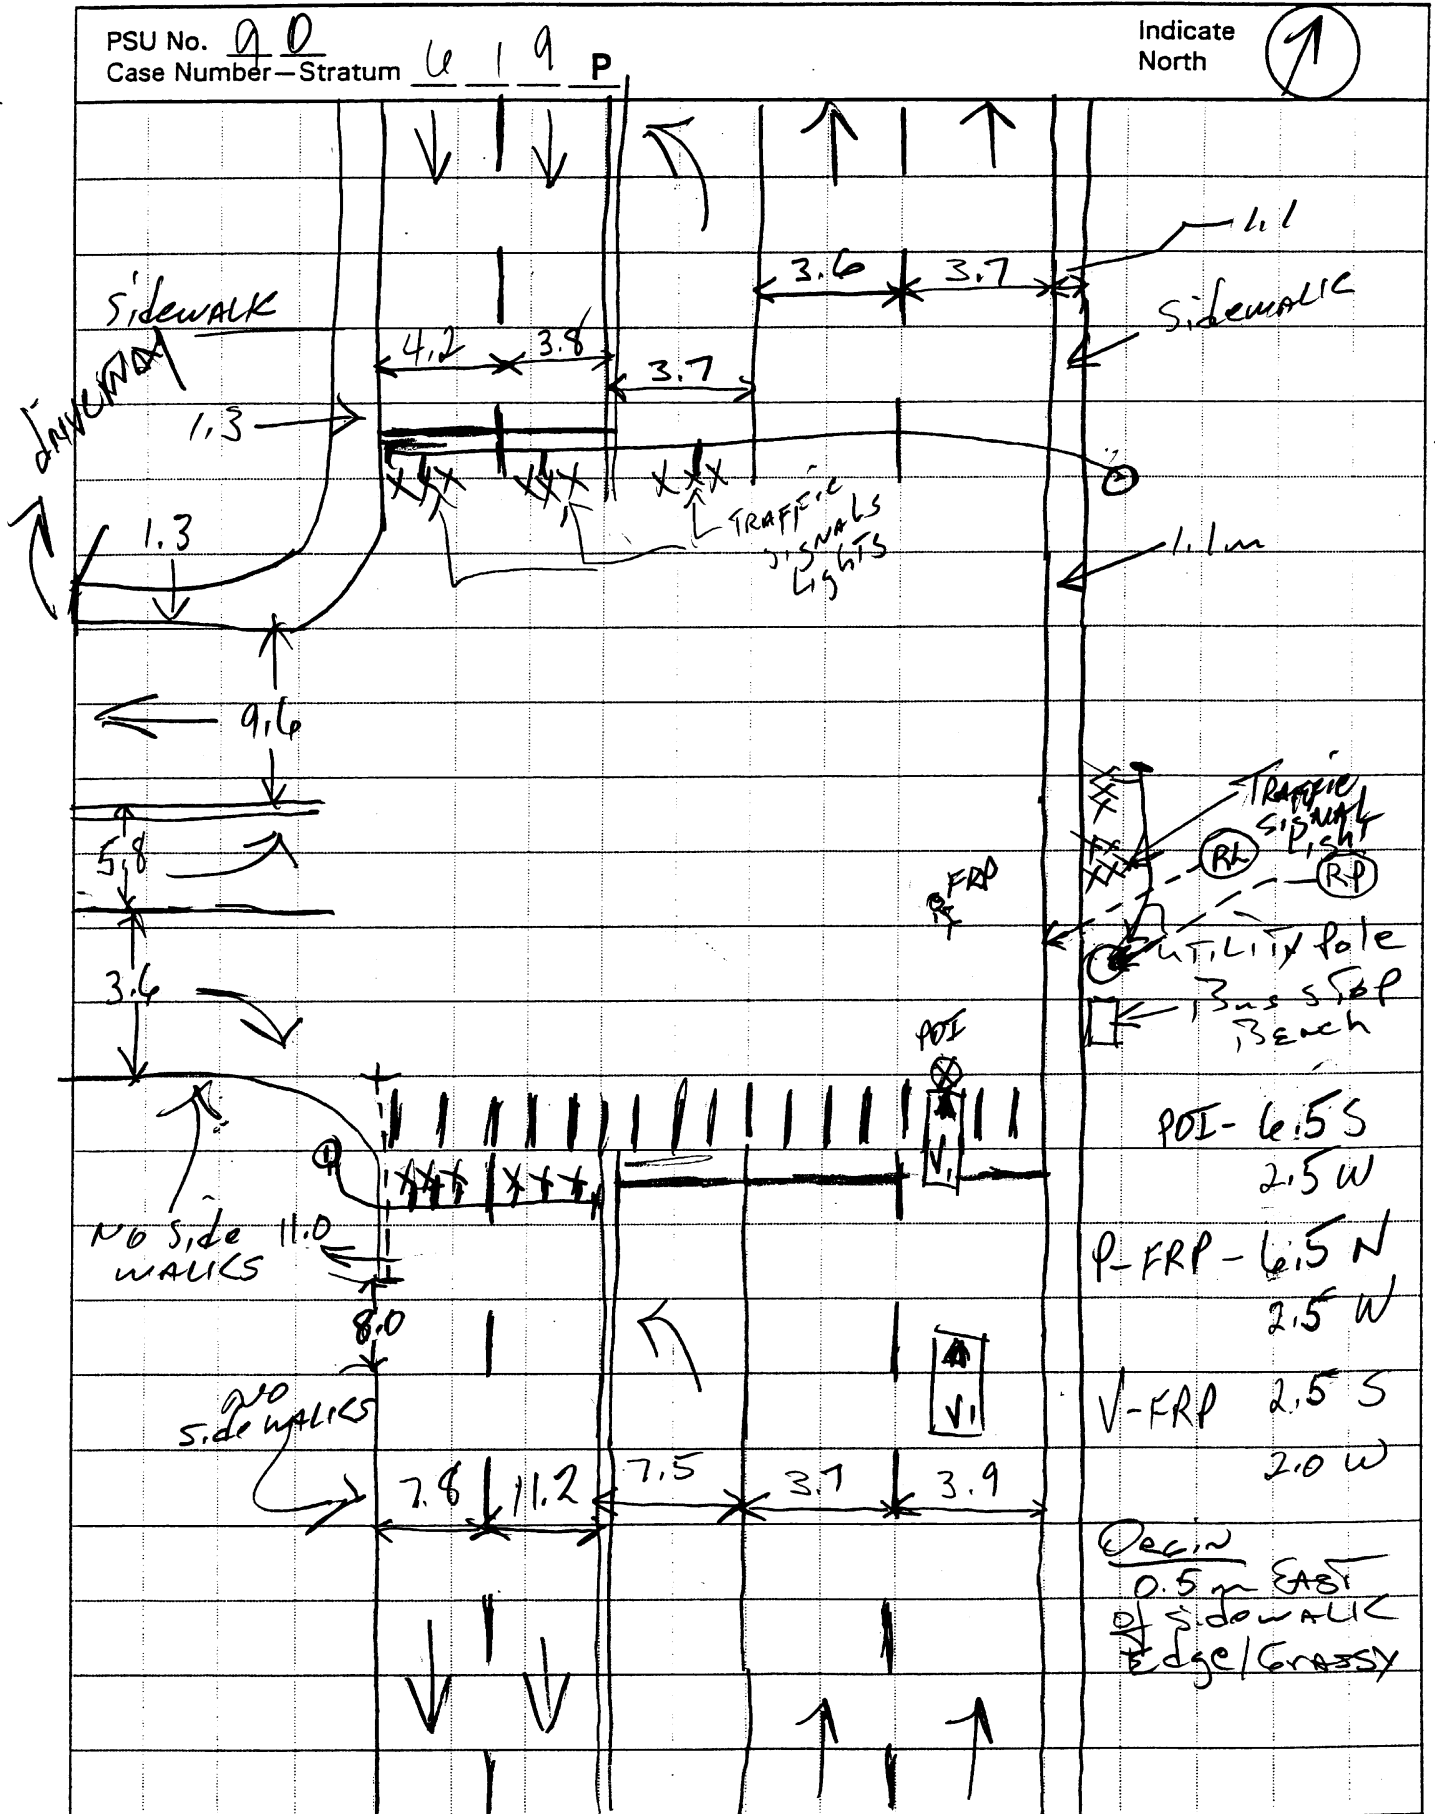 PSU No. 90
Case Number—Stratum 6 1 9 P
Indicate
North
1.1
3.6 3.7
Sidewalk
Sidewalk
4.2 3.8
3.7
driveway
1.3
1.3
Traffic
Signals
Lights
1.1m
9.6
Traffic
Signal
Light
5.8
RL
FRP
RP
Utility Pole
3.6
Bus Stop
Bench
POI
POI- 6.5 S
V1
2.5 W
No Side
walks
11.0
P-FRP - 6.5 N
2.5 W
8.0
V1
No
Sidewalks
V-FRP 2.5 S
2.0 W
7.8 11.2 7.5 3.7 3.9
0.5 m East
of sidewalk
Edge/Grassy